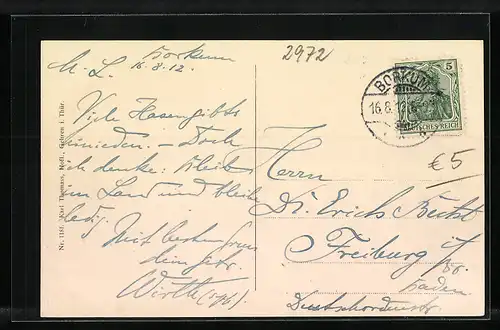 2972
Borkum
16.8.12.
M. L.
Viele Hasen gibts
hinieden. – Doch
ich denke: bleib
im Land und bleibe
ledig.
Mit bestem Gruss
dein getr.
Wirth
Herrn
Dr. Erich Becht
Freiburg i/Br.
Baden
Deutschordenstr.
BORKUM
16.8.12
5
DEUTSCHES REICH
€ 5
Nr. 1181. Karl Thomass, Hofl., Gehren i. Thür.